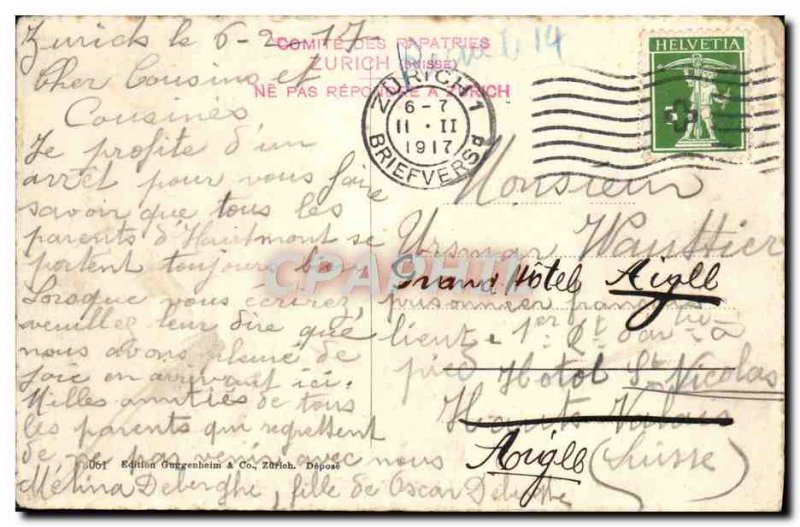 Zurich le 6-2-17
Cher Cousins et
Cousines
Je profite d'un
arrêt pour vous faire
savoir que tous les
parents d'Hautmont se
portent toujours bien
Lorsque vous écrirez
veuillez leur dire que
nous avons pleuré de
joie en arrivant ici.
Milles amitiés de tous
les parents qui regrettent
de ne pas venir avec nous
Mélina Deberghe, fille de Oscar Deberghe
COMITÉ DES RAPATRIÉS
ZURICH (SUISSE)
NE PAS RÉPONDRE A ZURICH
ZÜRICH 1
6-7
11·II
1917
BRIEFVERSd
HELVETIA
Monsieur
Ursmar Wauttier
Grand Hôtel Aigle
prisonnier français
1er Rt d'art à
pied Hotel St Nicolas
Hauts Valais
Aigle (Suisse)
Edition Guggenheim & Co., Zürich. Déposé
CPAPHIL